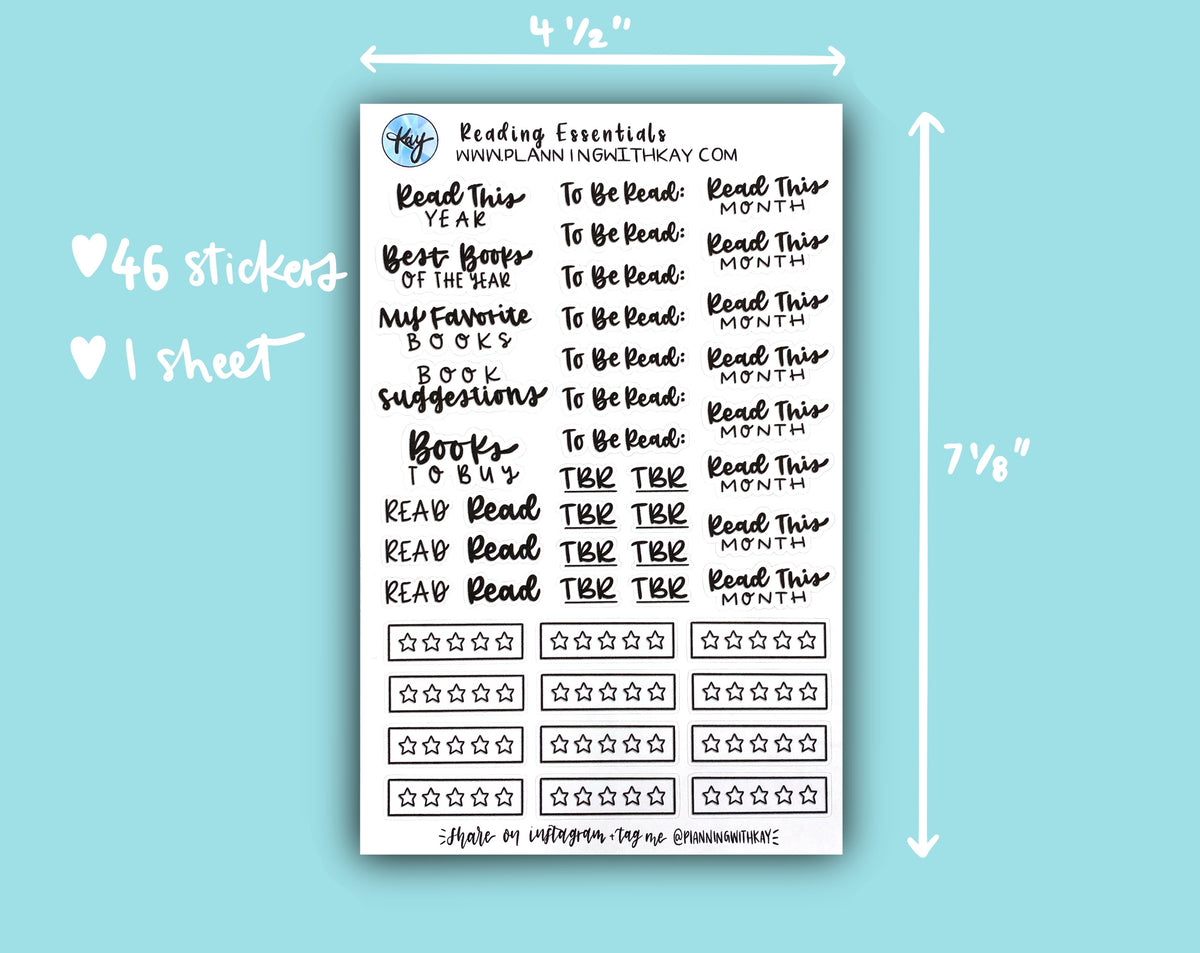 4 1/2"
♥46 stickers
♥ 1 sheet
7 1/8"
Kay
Reading Essentials
WWW.PLANNINGWITHKAY.COM
Read This
YEAR
Best Books
OF THE YEAR
My Favorite
BOOKS
BOOK
suggestions
Books
TO BUY
READ Read
READ Read
READ Read
To Be Read:
To Be Read:
To Be Read:
To Be Read:
To Be Read:
To Be Read:
To Be Read:
TBR TBR
TBR TBR
TBR TBR
TBR TBR
Read This
MONTH
Read This
MONTH
Read This
MONTH
Read This
MONTH
Read This
MONTH
Read This
MONTH
Read This
MONTH
Read This
MONTH
share on instagram + tag me @PLANNINGWITHKAY